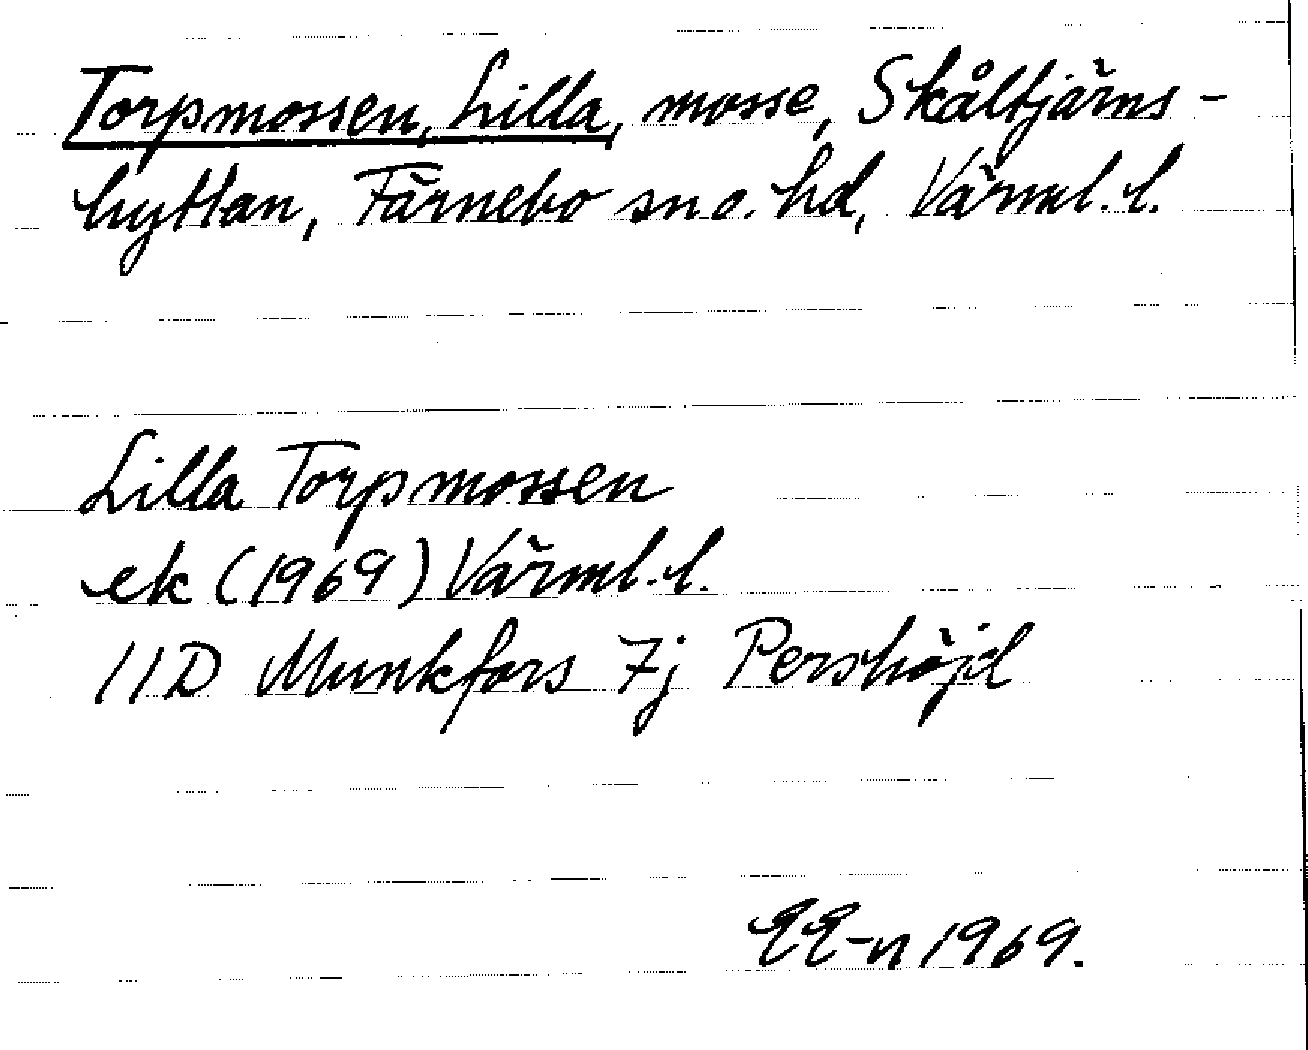 Torpmossen, Lilla, mosse, Skåltjärns-
hyttan, Färnebo sn o. hd, Värml. l.
Lilla Torpmossen
ek (1969) Värml. l.
11D Munkfors 7j Pershöjd
EE-n 1969.